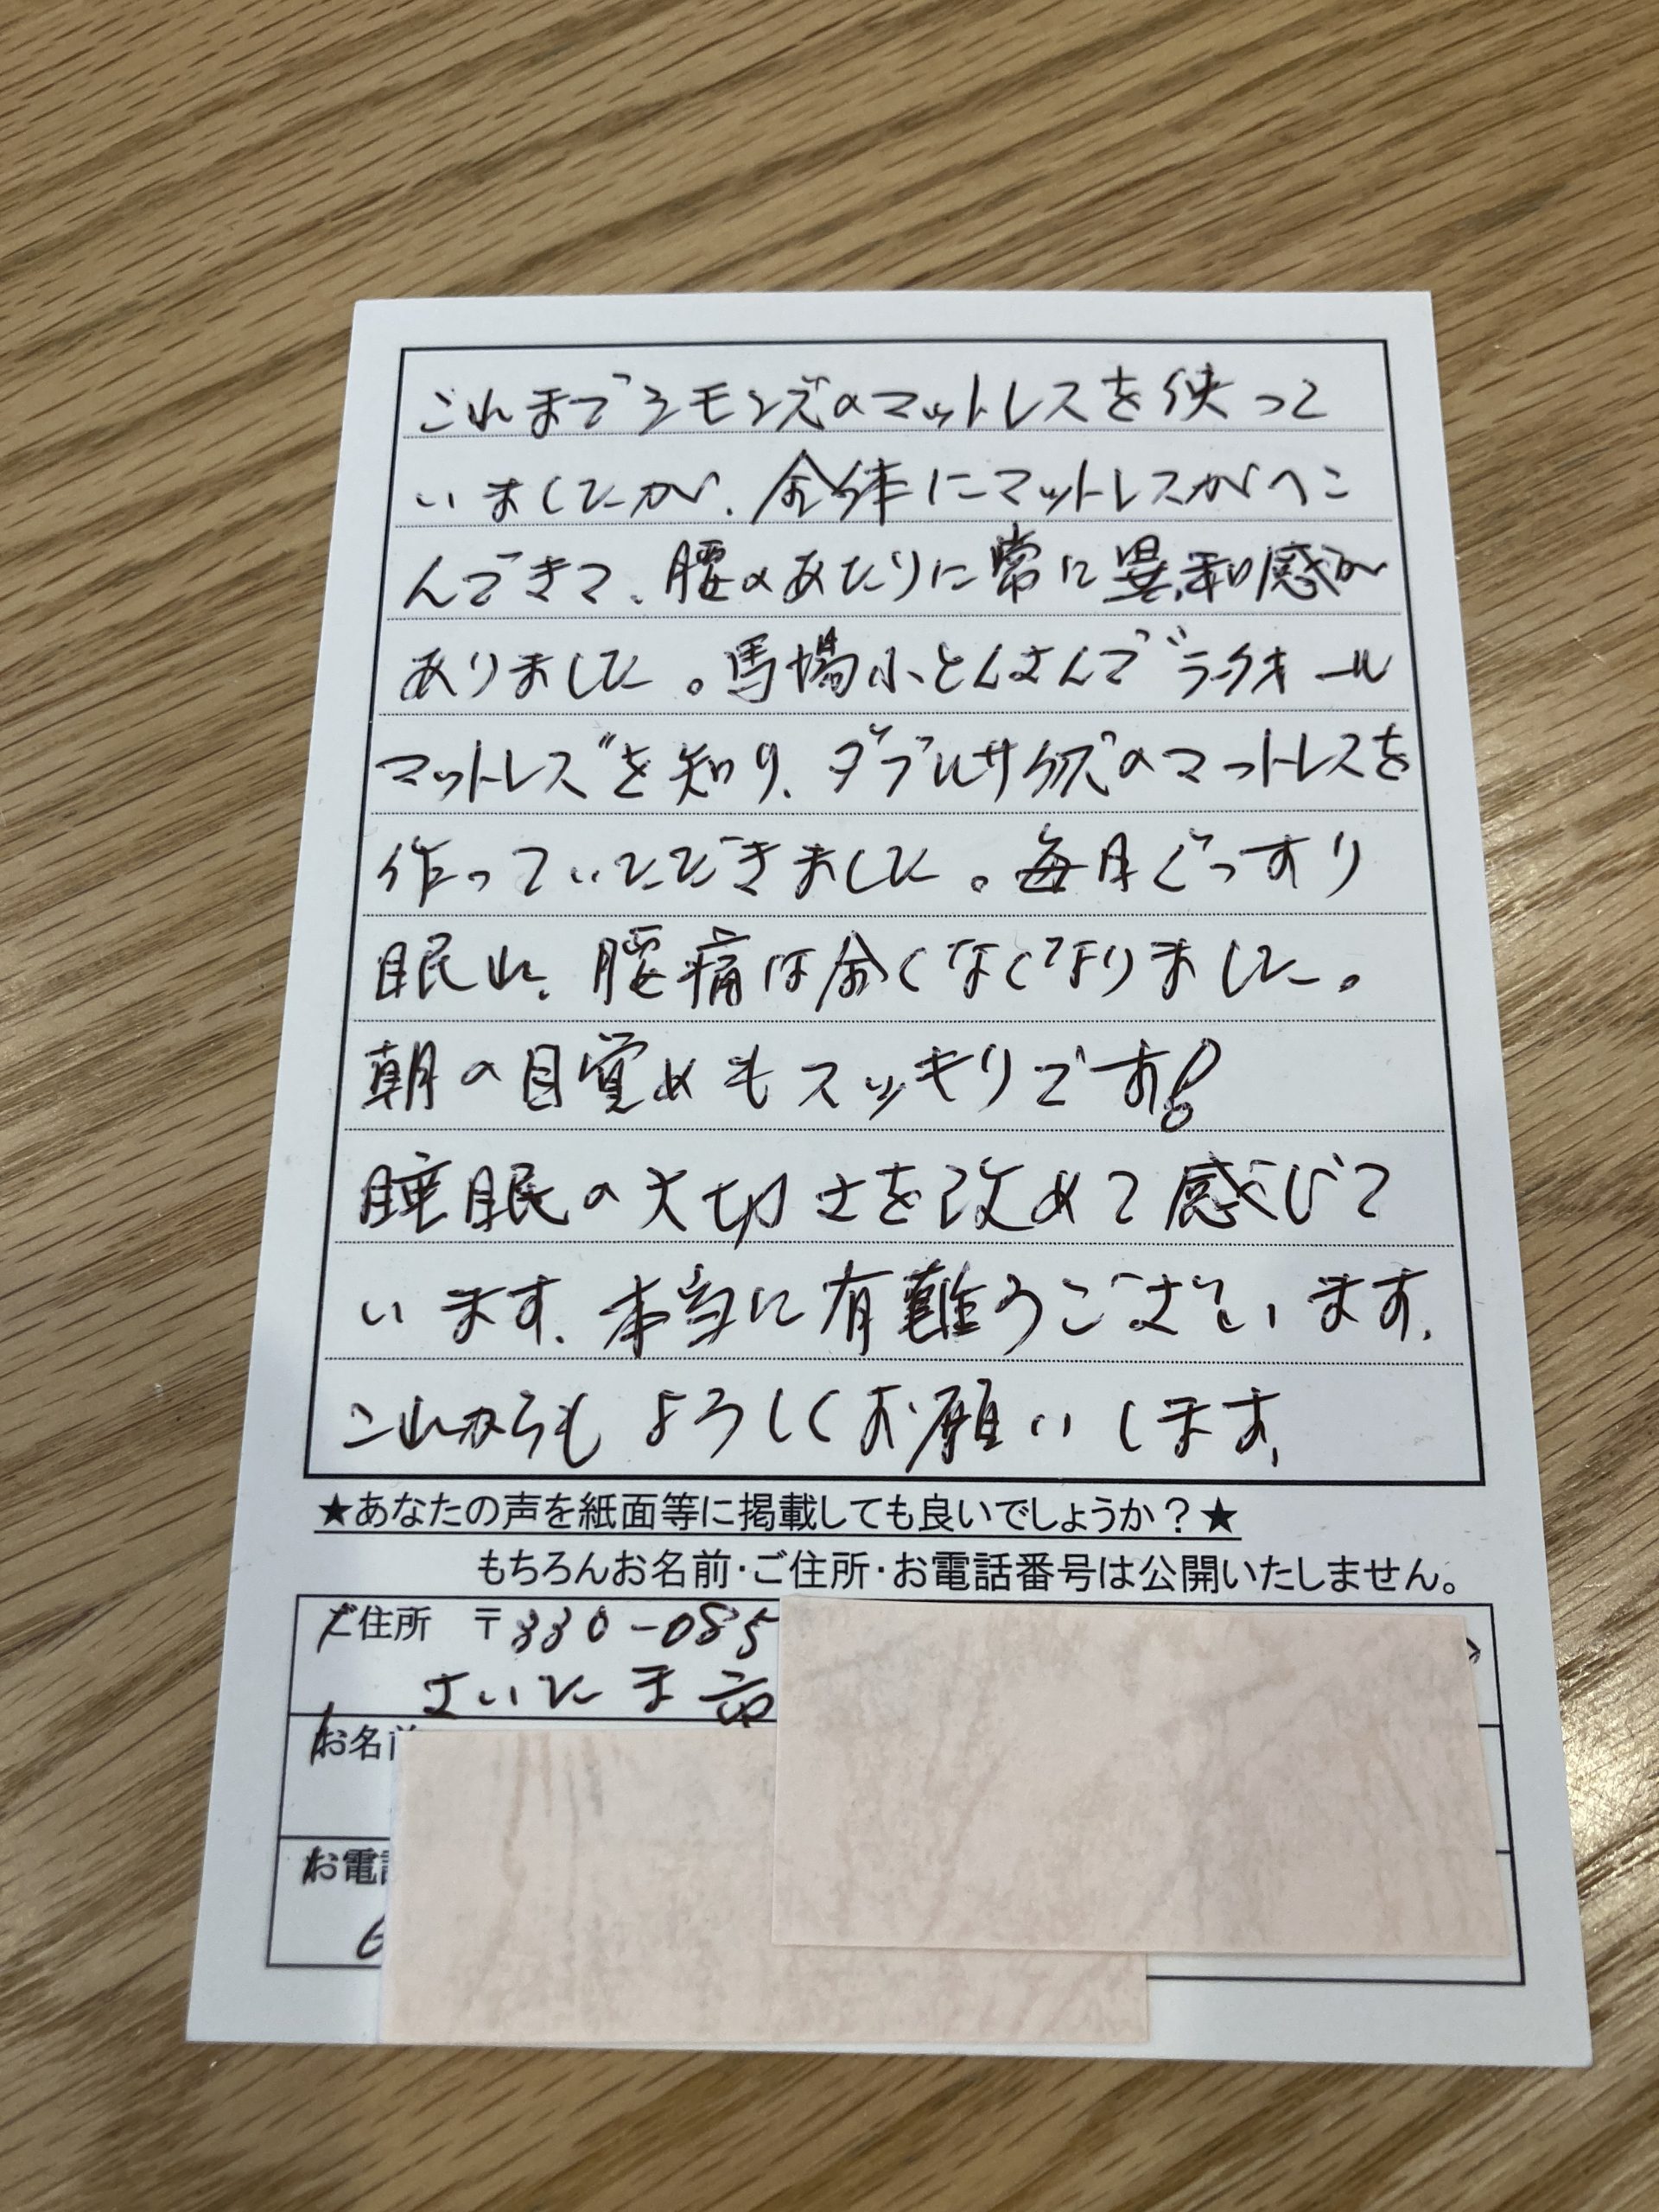 これまでシモンズのマットレスを使って
いましたが、全体にマットレスがへこ
んできて、腰のあたりに常に異和感が
ありました。馬場ふとんさんで"ラークオール
マットレス"を知り、ダブルサイズのマットレスを
作っていただきました。毎日ぐっすり
眠れ、腰痛は全くなくなりました。
朝の目覚めもスッキリです!
睡眠の大切さを改めて感じて
います。本当に有難うございます。
これからもよろしくお願いします。
★あなたの声を紙面等に掲載しても良いでしょうか?★
もちろんお名前・ご住所・お電話番号は公開いたしません。
ご住所 〒330-085
さいたま市
お名前
お電話